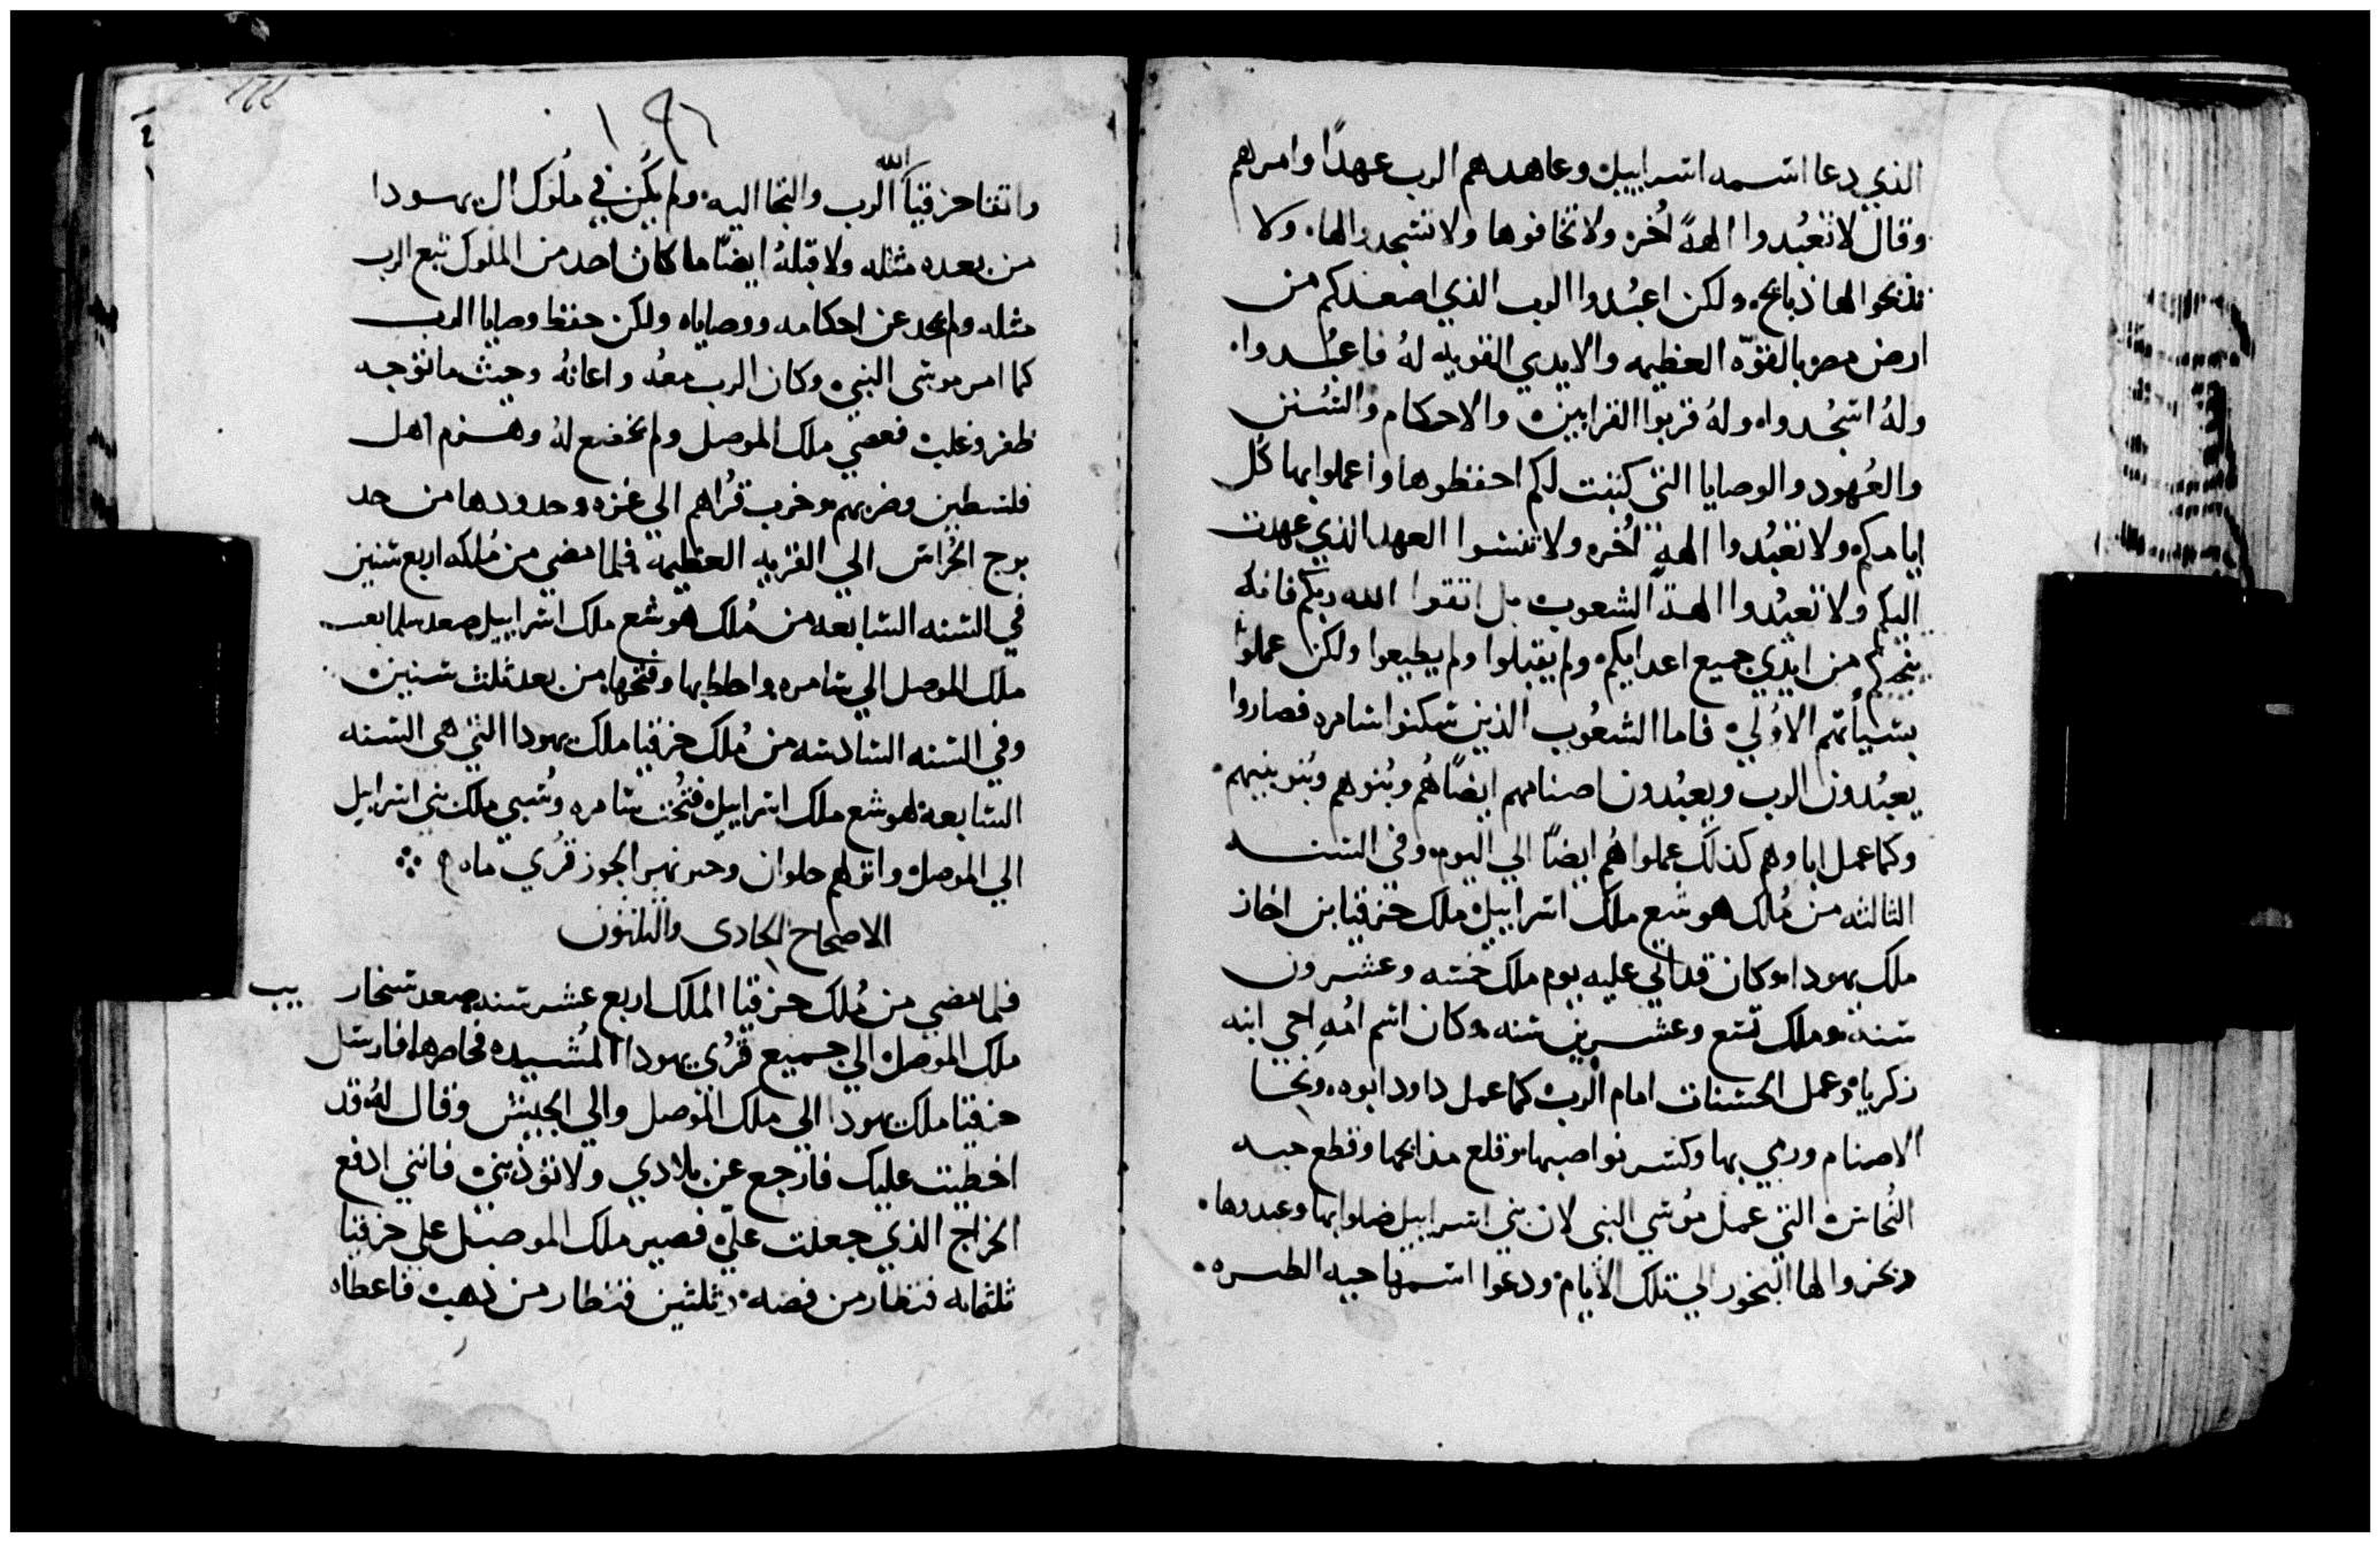 الذي دعا اسمه اسراييل وعاهدهم الرب عهدًا وامرهم
وقال لا تعبُدوا الهةً اُخره ولا تخافوها ولا تسجدوا لها. ولا
تذبحوا لها ذبايح. ولكن اعبُدوا الرب الذي اصعدكم من
ارض مصر بالقوّه العظيمه والايدي القويه لهُ فاعبُدوا.
ولهُ اسجُدوا. ولهُ قربوا القرابين. والاحكام والسُنن
والعُهود والوصايا التي كتبت لكم احفظوها واعملوا بها كل
ايامكم. ولا تعبُدوا الهةٍ اُخره ولا تنسوا العهد الذي عهدت
اليكم ولا تعبُدوا الهة الشعوب بل اتقوا الله ربكم فانه
ينجيكم من ايدي جميع اعدايكم. ولم يقبلوا ولم يطيعوا ولكن عملوا
بسيأتهم الاولي. فاما الشعُوب الذين سكنوا سامره فصاروا
يعبُدون الرب ويعبُدون اصنامهم ايضًا هُم وبُنوهم وبُنو بنيهم.
وكما عمل اباوهم كذلك عملوا هُم ايضًا الي اليوم. وفي السنه
الثالثه من مُلك هوشع ملك اسراييل. ملك حزقيا بن احاز
ملك يهودا. وكان قد اتي عليه يوم ملك خمسه وعشرون
سنة. وملك تسع وعشرين سنه. وكان اسم امُهِ احي ابنه
زكريا. وعمل الحسنات امام الرب كما عمل داود ابوه. ونحّا
الاصنام ورمي بها وكسر نواصبها. وقلع مذابحها وقطع حيه
النُحاس التي عمل مُوسي النبي لان بني اسراييل ضلوا بها وعبدوها.
وبخروا لها البخور الي تلك الايام. ودعوا اسمها حيه
واتقا حزقيا الله الرب والتجا اليه. ولم يكُن في ملُوك ال يهودا
من بعده مثله ولا قبلهُ ايضًا ما كان احد من الملوك تبع الرب
مثله ولم يحد عن احكامه ووصاياه ولكن حفظ وصايا الرب
كما امر موسى النبي. وكان الرب معهُ واعانهُ وحيث ما توجه
ظفر وغلب. فعصي ملك الموصل ولم يخضع لهُ وهزم اهل
فلسطين وضربهم. وخرب قُراهم الي غزه وحدودها من حد
برج الحُراس الي القريه العظيمه. فلما مضي من مُلكه اربع سنين
في السنه السابعه من مُلك هوشع ملك اسراييل صعد
ملك الموصل الي سامره واحاط بها وفتحها. من بعد ثلث سنين.
وفي السنه السادسه من مُلك حزقيا ملك يهودا التي هي السنه
السابعة لهوشع ملك اسراييل. فتُحت سامره وسُبي ملك بني اسرايل
الي الموصل. وانزلهم حلوان نهر الجوز قري ماه
الاصحاح الحادى والثلثون
فلما مضي من مُلك حزقيا الملك اربع عشر سنه. صعد سنحار يب
ملك الموصل الي جميع قُري يهودا المُشيده فحاصرها. فارسل
حزقيا ملك يهودا الي ملك الموصل والي الجيش وقال لهُ قد
اخطيت عليك فارجع عن بلادي ولا تؤذيني. فانني ادفع
الخراج الذي جعلت عليّ. فصير ملك الموصل علي حزقيا
ثلثمايه قنطار من فضه. وثلثين قنطار من ذهب. فاعطاه